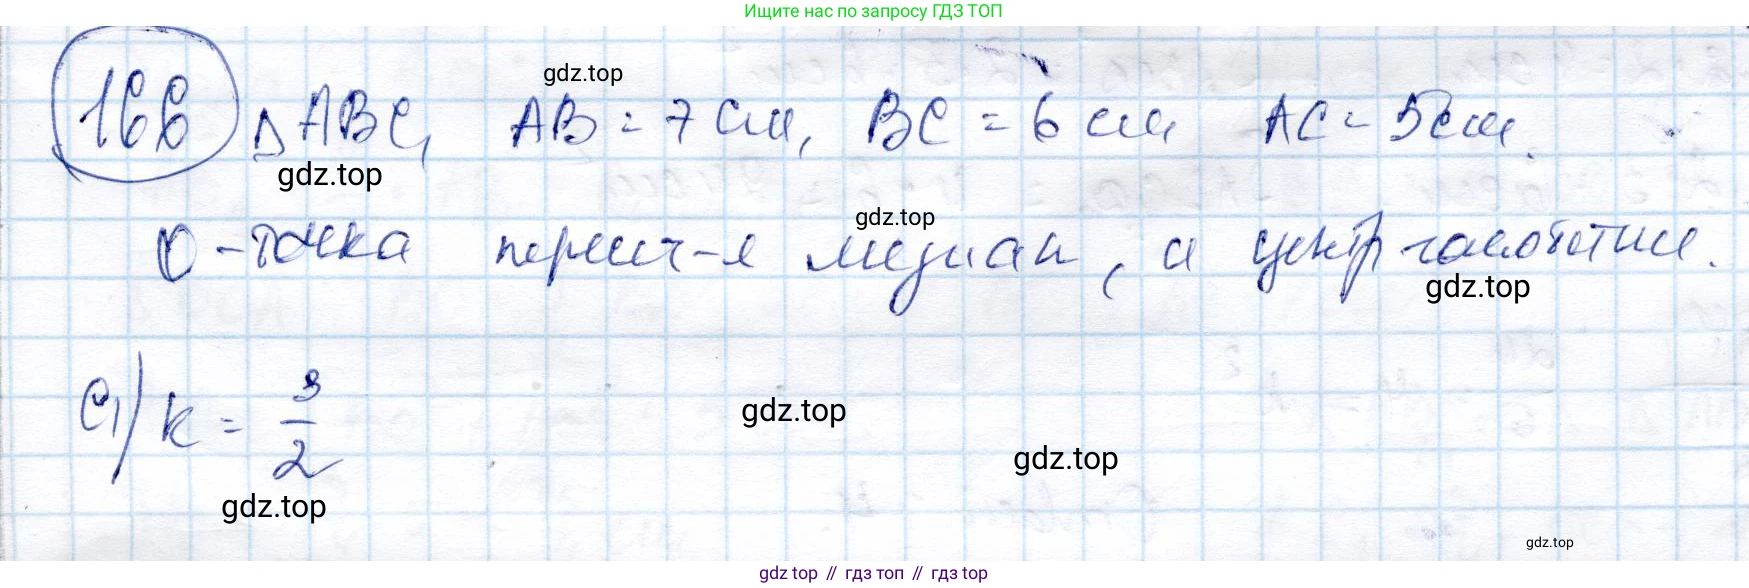 Ищите нас по запросу ГДЗ ТОП
gdz.top
166 Δ ABC, AB = 7 см, BC = 6 см AC = 5 см.
gdz.top
gdz.top
O - точка перес-я медиан, и центр гомотетии.
gdz.top
a) k = 3/2
gdz.top
gdz.top
gdz.top
gdz.top
gdz top // гдз топ // гдз top